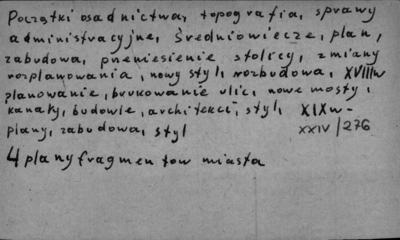 Początki osadnictwa, topografia, sprawy
administracyjne, średniowiecze, plan,
zabudowa, przeniesienie stolicy, zmiany
rozplanowania, nowy styl, rozbudowa, XVIIIw
planowanie, brukowanie ulic, nowe mosty,
kanały, budowle, architekci, styl, XIXw -
plany, zabudowa, styl XXIV/276
4 plany fragmentow miasta